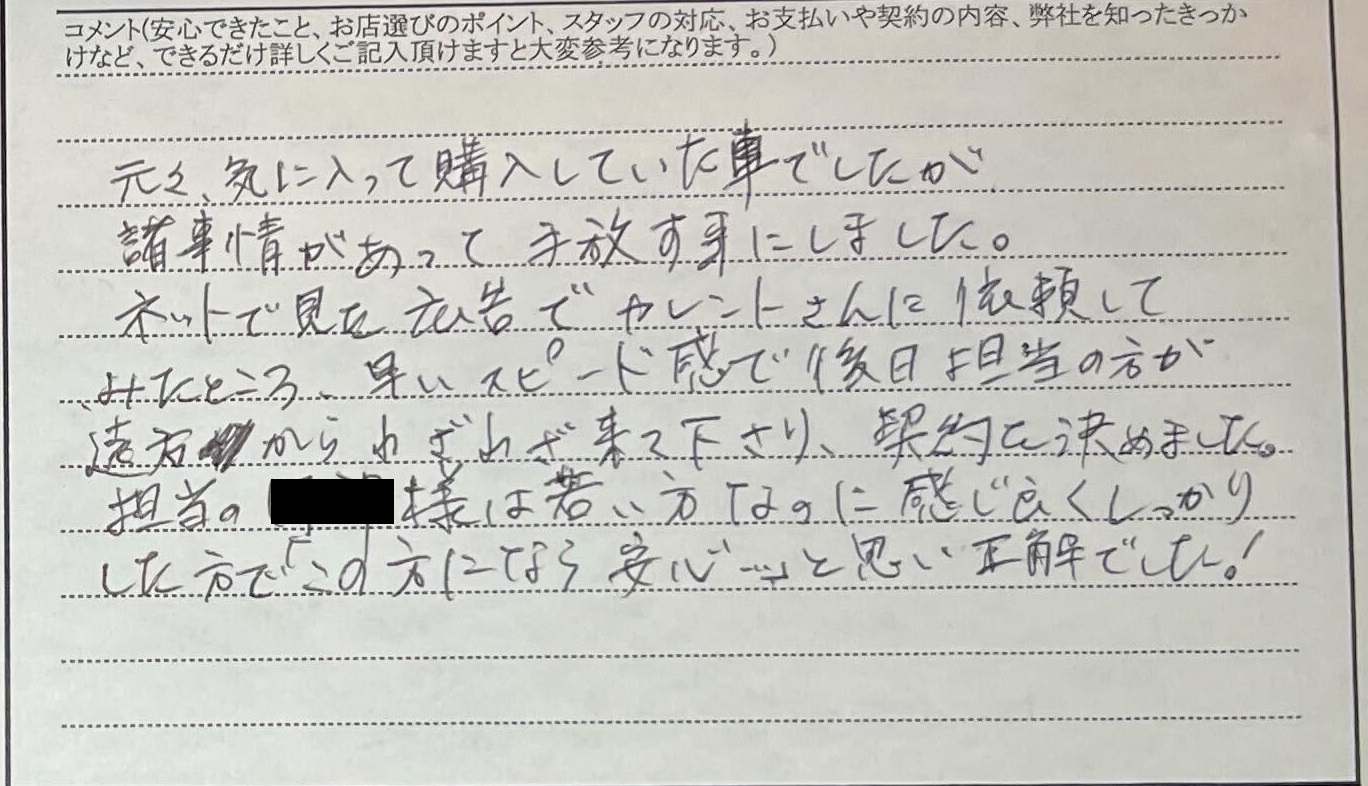 コメント(安心できたこと、お店選びのポイント、スタッフの対応、お支払いや契約の内容、弊社を知ったきっか
けなど、できるだけ詳しくご記入頂けますと大変参考になります。)
元々、気に入って購入していた車でしたが
諸事情があって手放す事にしました。
ネットで見た広告でカレントさんに依頼して
みたところ、早いスピード感で後日担当の方が
遠方からわざわざ来て下さり、契約を決めました。
担当の様は若い方なのに感じ良くしっかり
した方で「この方になら安心…」と思い正解でした!